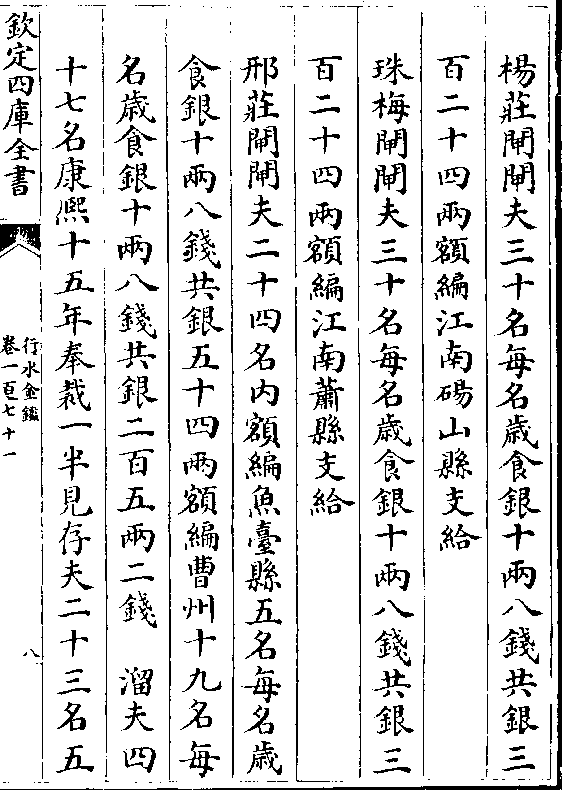 楊莊閘閘夫三十名每名歲食銀十兩八錢共銀三
百二十四兩額編江南碭山縣支給
珠梅閘閘夫三十名每名歲食銀十兩八錢共銀三
百二十四兩額編江南蕭縣支給
邢莊閘閘夫二十四名内額編魚臺縣五名每名歲
食銀十兩八錢共銀五十四兩額編曹州十九名每
名歲食銀十兩八錢共銀二百五兩二錢　溜夫四
十七名康熙十五年奉裁一半見存夫二十三名五
欽定四庫全書
行水金鑑
卷一百七十一
八